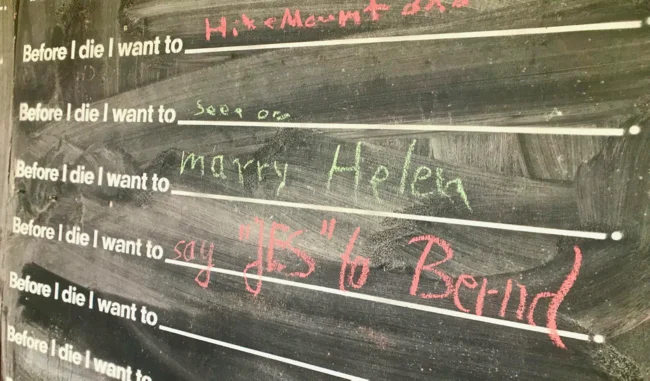 Before I die I want to Hike Mount
Before I die I want to
Before I die I want to marry Helen
Before I die I want to say "JES" to Bernd
Before I die I want to
Before I die I want to